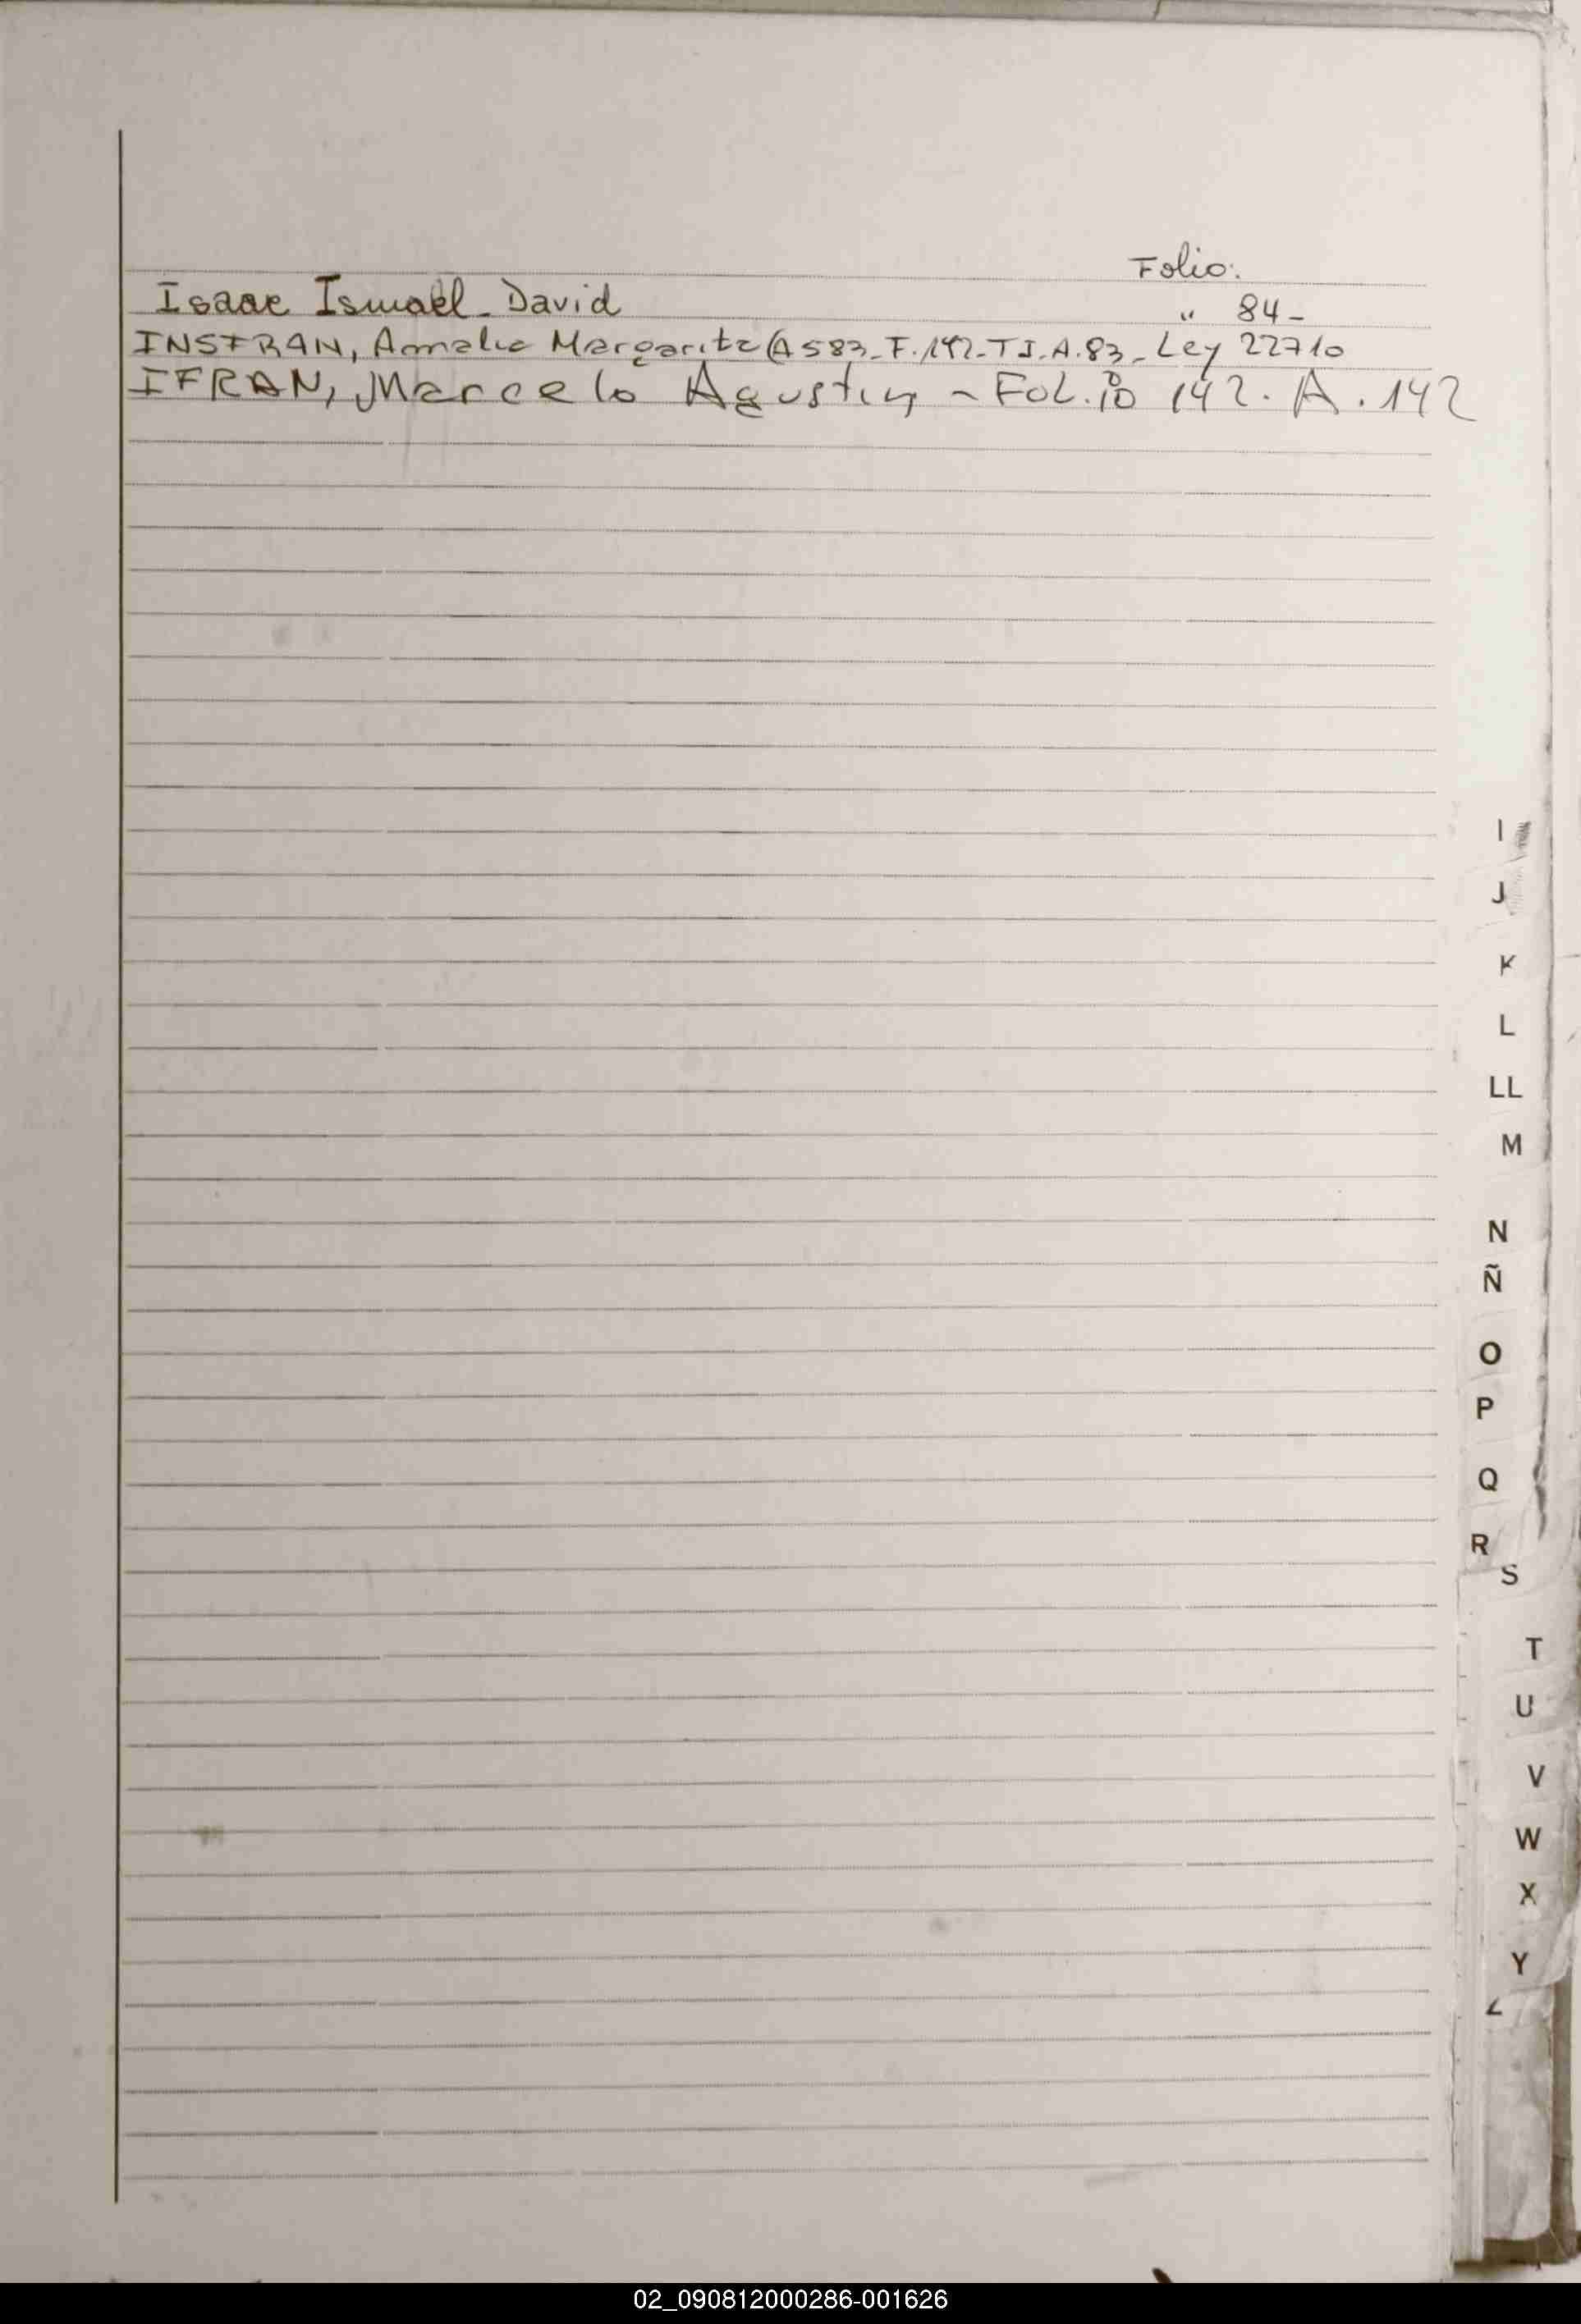 Folio:
Isaac Ismael David " 84-
INSFRAN, Amalia Margarita (A 583-F.142-T I-A.83-Ley 22710
IFRAN, Marcelo Agustin - FOLIO 142. A. 142
I
J
K
L
LL
M
N
Ñ
O
P
Q
R
S
T
U
V
W
X
Y
Z
02_090812000286-001626